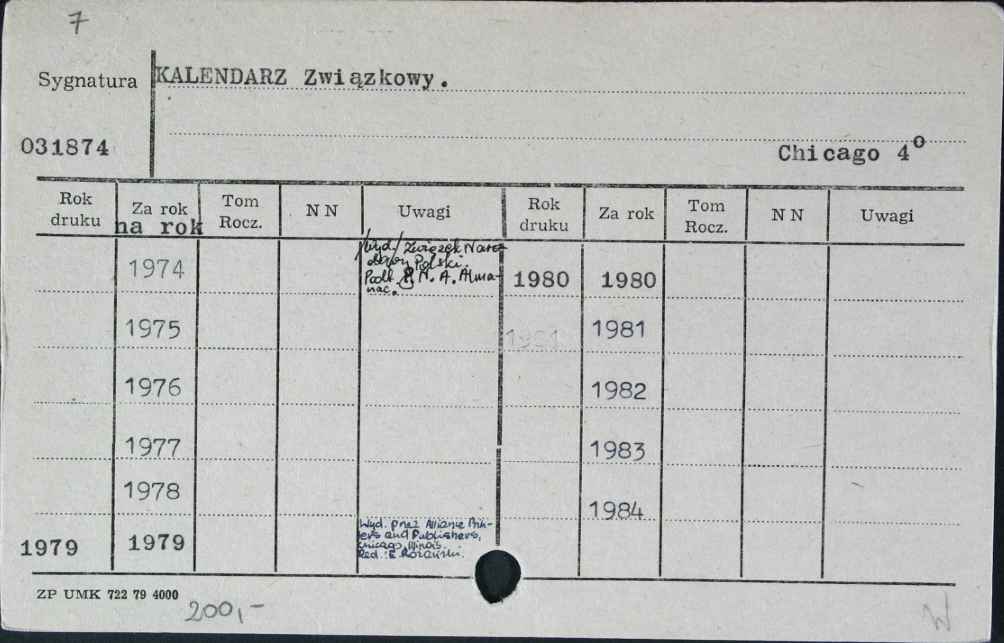 7
Sygnatura KALENDARZ Związkowy.
031874
Chicago 4º
Rok druku Za rok na rok Tom Rocz. N N Uwagi Rok druku Za rok Tom Rocz. N N Uwagi
/Wyd/ Związek Naro-
dowy Polski.
1974 Podt. P. N. A. Alma- 1980 1980
nac.
1975 1981
1976 1982
1977 1983
1978 1984
Wyd. przez Alliance Prin-
ters and Publishers,
1979 1979 Chicago, Illinois.
Red.:
ZP UMK 722 79 4000
200,-
W